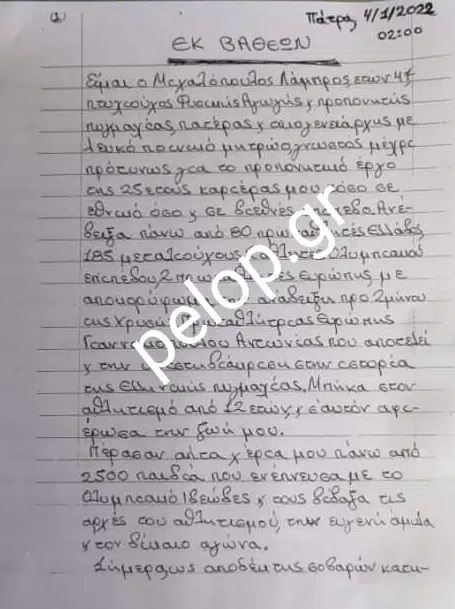 (1)
Πάτρα 4/1/2022
02:00
ΕΚ ΒΑΘΕΩΝ
Είμαι ο Μεγαλόπουλος Λάμπρος ετών
πτυχιούχος Φυσικής Αγωγής & προπονητής
πυγμαχίας, πατέρας & οικογενειάρχης με
λευκό ποινικό μητρώο, γνωστός μέχρι
πρότινως για το προπονητικό έργο
της 25ετούς καριέρας μου τόσο σε
εθνικό όσο & σε διεθνές επίπεδο. Ανέ-
δειξα πάνω από 80 Ελλάδος
185 μεταλιούχους Ολυμπιακού
επιπέδου, 2 Ευρώπης με
αποκορύφωμα ανάδειξη προ 2μήνου
της Χρυσής Πρωταθλήτριας Ευρώπης
Γιαννακοπούλου Αντωνίας που αποτελεί
& την στην ιστορία
της Ελληνικής πυγμαχίας. Μπήκα στον
αθλητισμό από 12 ετών & σ'αυτόν αφι-
έρωσα την ζωή μου.
Πέρασαν από τα χέρια μου πάνω από
2500 παιδιά που ενέπνευσα με το
Ολυμπιακό Ιδεώδες & τους δίδαξα τις
αρχές του αθλητισμού, την ευγενή άμιλα
& τον δίκαιο αγώνα.
Σήμερα ως αποδέκτης σοβαρών κατη-
pelop.gr